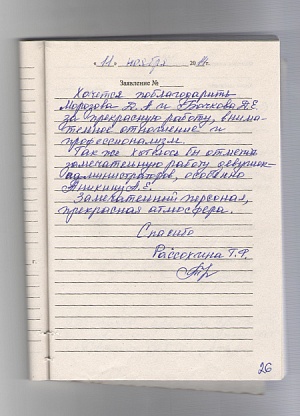 „11" ноября 2014г.
Заявление №
Хочется поблагодарить
Морозова Д. А и Бочкова Д. Е
за прекрасную работу, внима-
тельное отношение и
профессионализм.
Так же хотелось бы отметить
замечательную работу девушек-
администраторов, особенно
Аникину А. Е.
Замечательный персонал,
прекрасная атмосфера.
Спасибо
Рассохина Т. Ф.
г.
26